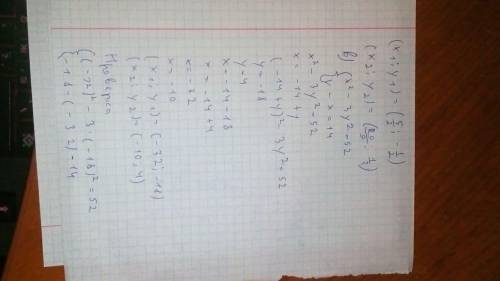 (x₁; y₁) = (5/2; -1/2)
(x₂; y₂) =
в) {x² - 3y² = 52
{y - x = 14
x² - 3y² = 52
x = -14 + y
(-14 + y)² - 3y² = 52
y = -18
y = 4
x = -14 - 18
x = -14 + 4
x = -32
x = -10
(x₁; y₁) = (-32; -18)
(x₂; y₂) = (-10; 4)
Проверка
{(-32)² - 3·(-18)² = 52
{-18-(-32) = 14